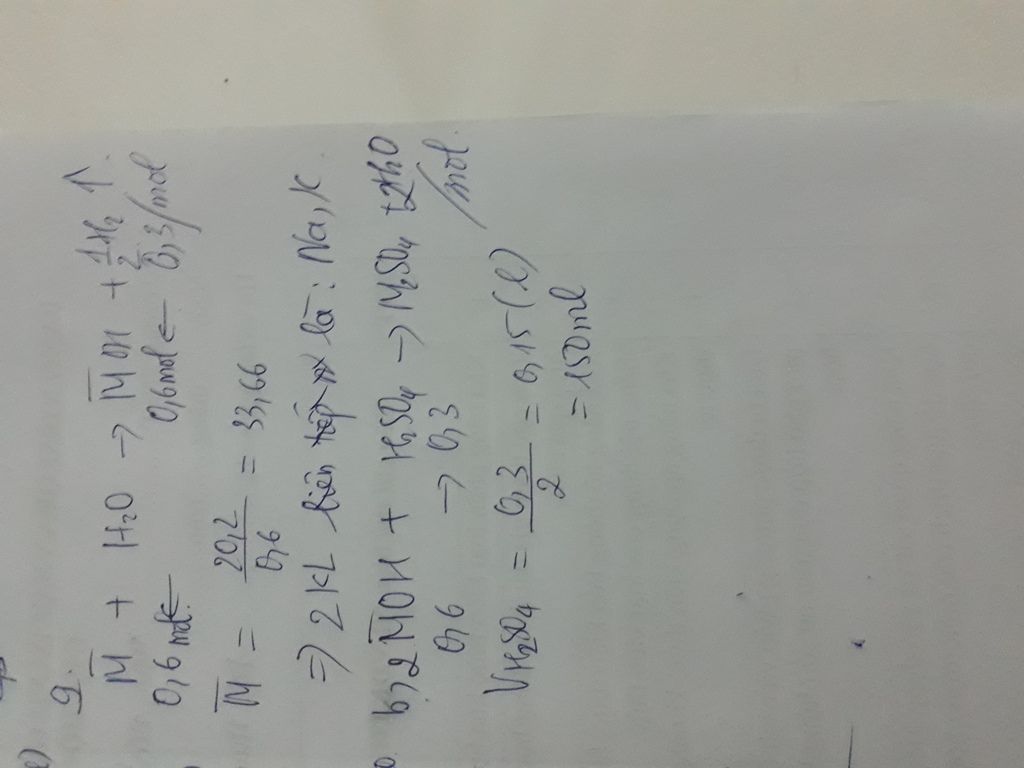 9.
M̄ + H₂O → M̄OH + 1/2 H₂ ↑
0,6 mol ← 0,6 mol ← 0,3 /mol
M̄ = 20,2/0,6 = 33,66
=> 2 KL liên tiếp là: Na, K
b, 2M̄OH + H₂SO₄ → M₂SO₄ + 2H₂O
0,6 → 0,3 /mol
VH₂SO₄ = 0,3/2 = 0,15 (l)
= 150 ml